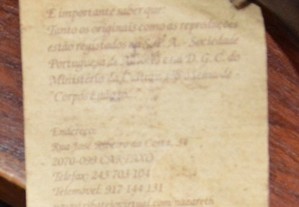 É importante saber que:
Tanto os originais como as reproduções
estão registados na S. P. A. - Sociedade
Portuguesa de Autores e na D. G. C. do
Ministério da
"Corpo e alma".
Endereço:
Rua José Ribeiro da Costa, 34
2070-099 CARTAXO
Telefax: 243 703 104
Telemóvel: 917 144 131